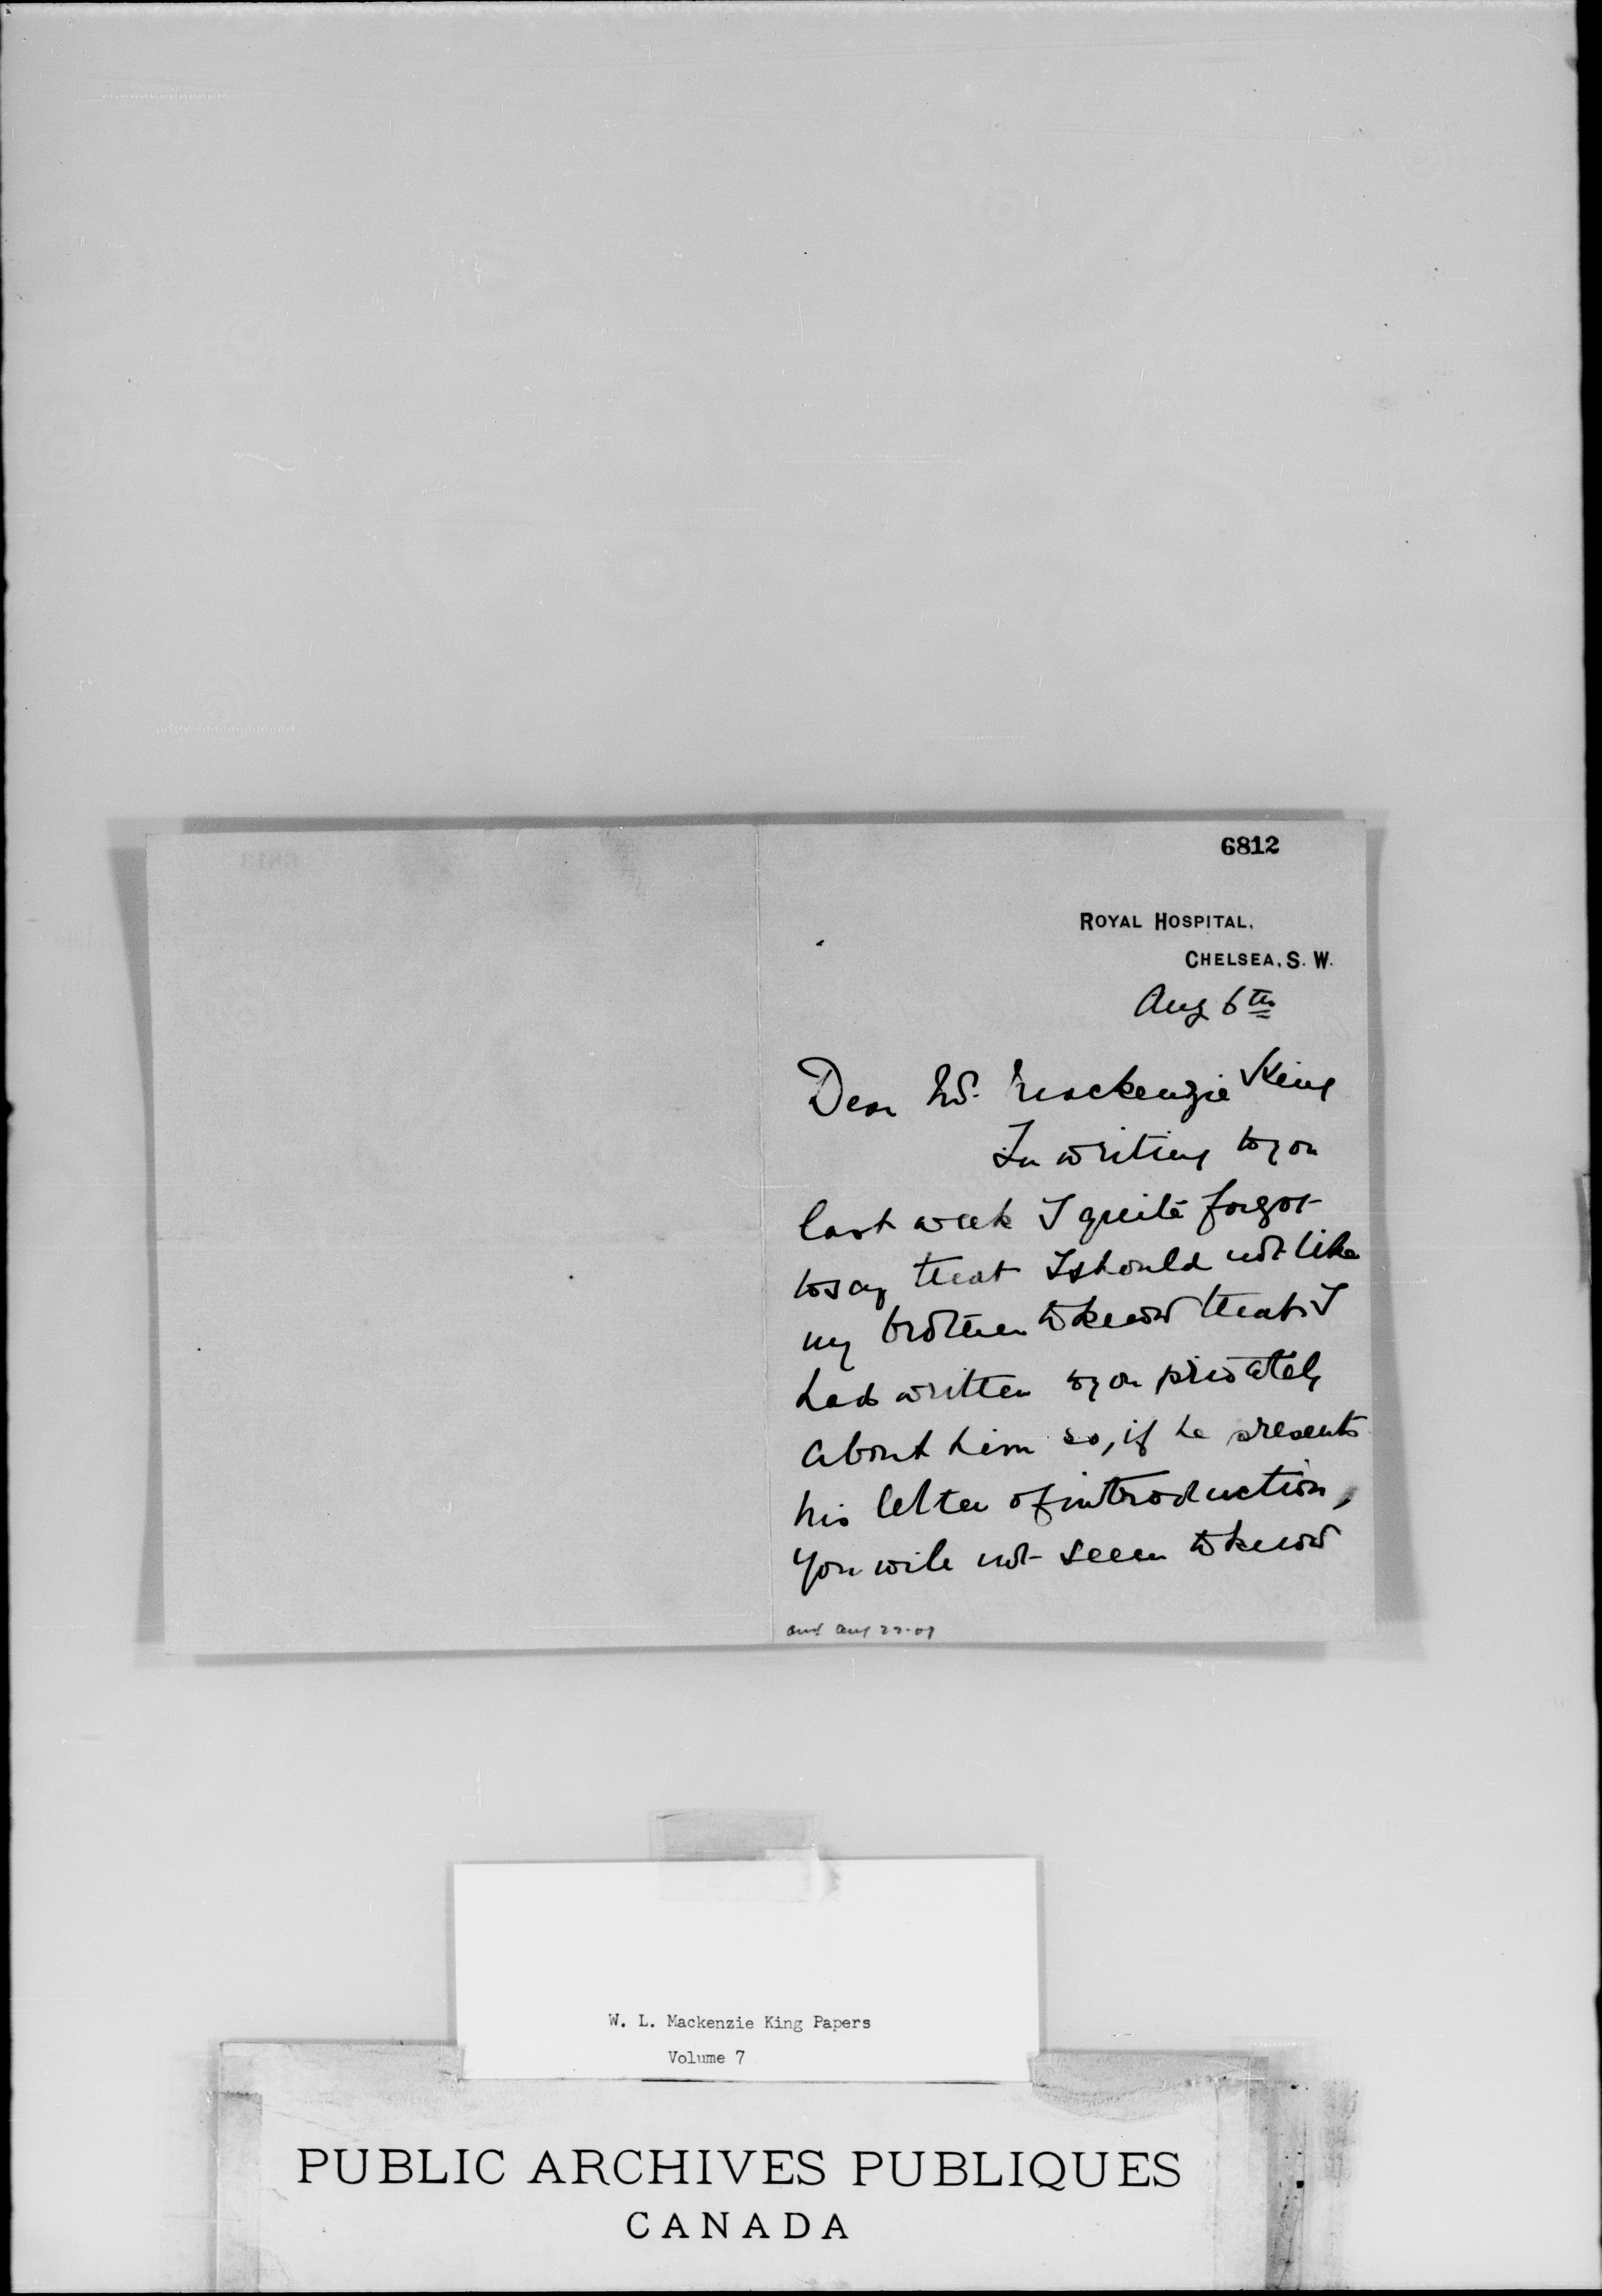 6812
ROYAL HOSPITAL,
CHELSEA, S. W.
Aug 6th
Dear Mr. Mackenzie King
In writing to you
last week I quite forgot
to say that I should not like
my brother to know that I
had written to you privately
about him so, if he presents
his letter of introduction,
you will not seem to know
and Aug 27-07
W. L. Mackenzie King Papers
Volume 7
PUBLIC ARCHIVES PUBLIQUES
CANADA